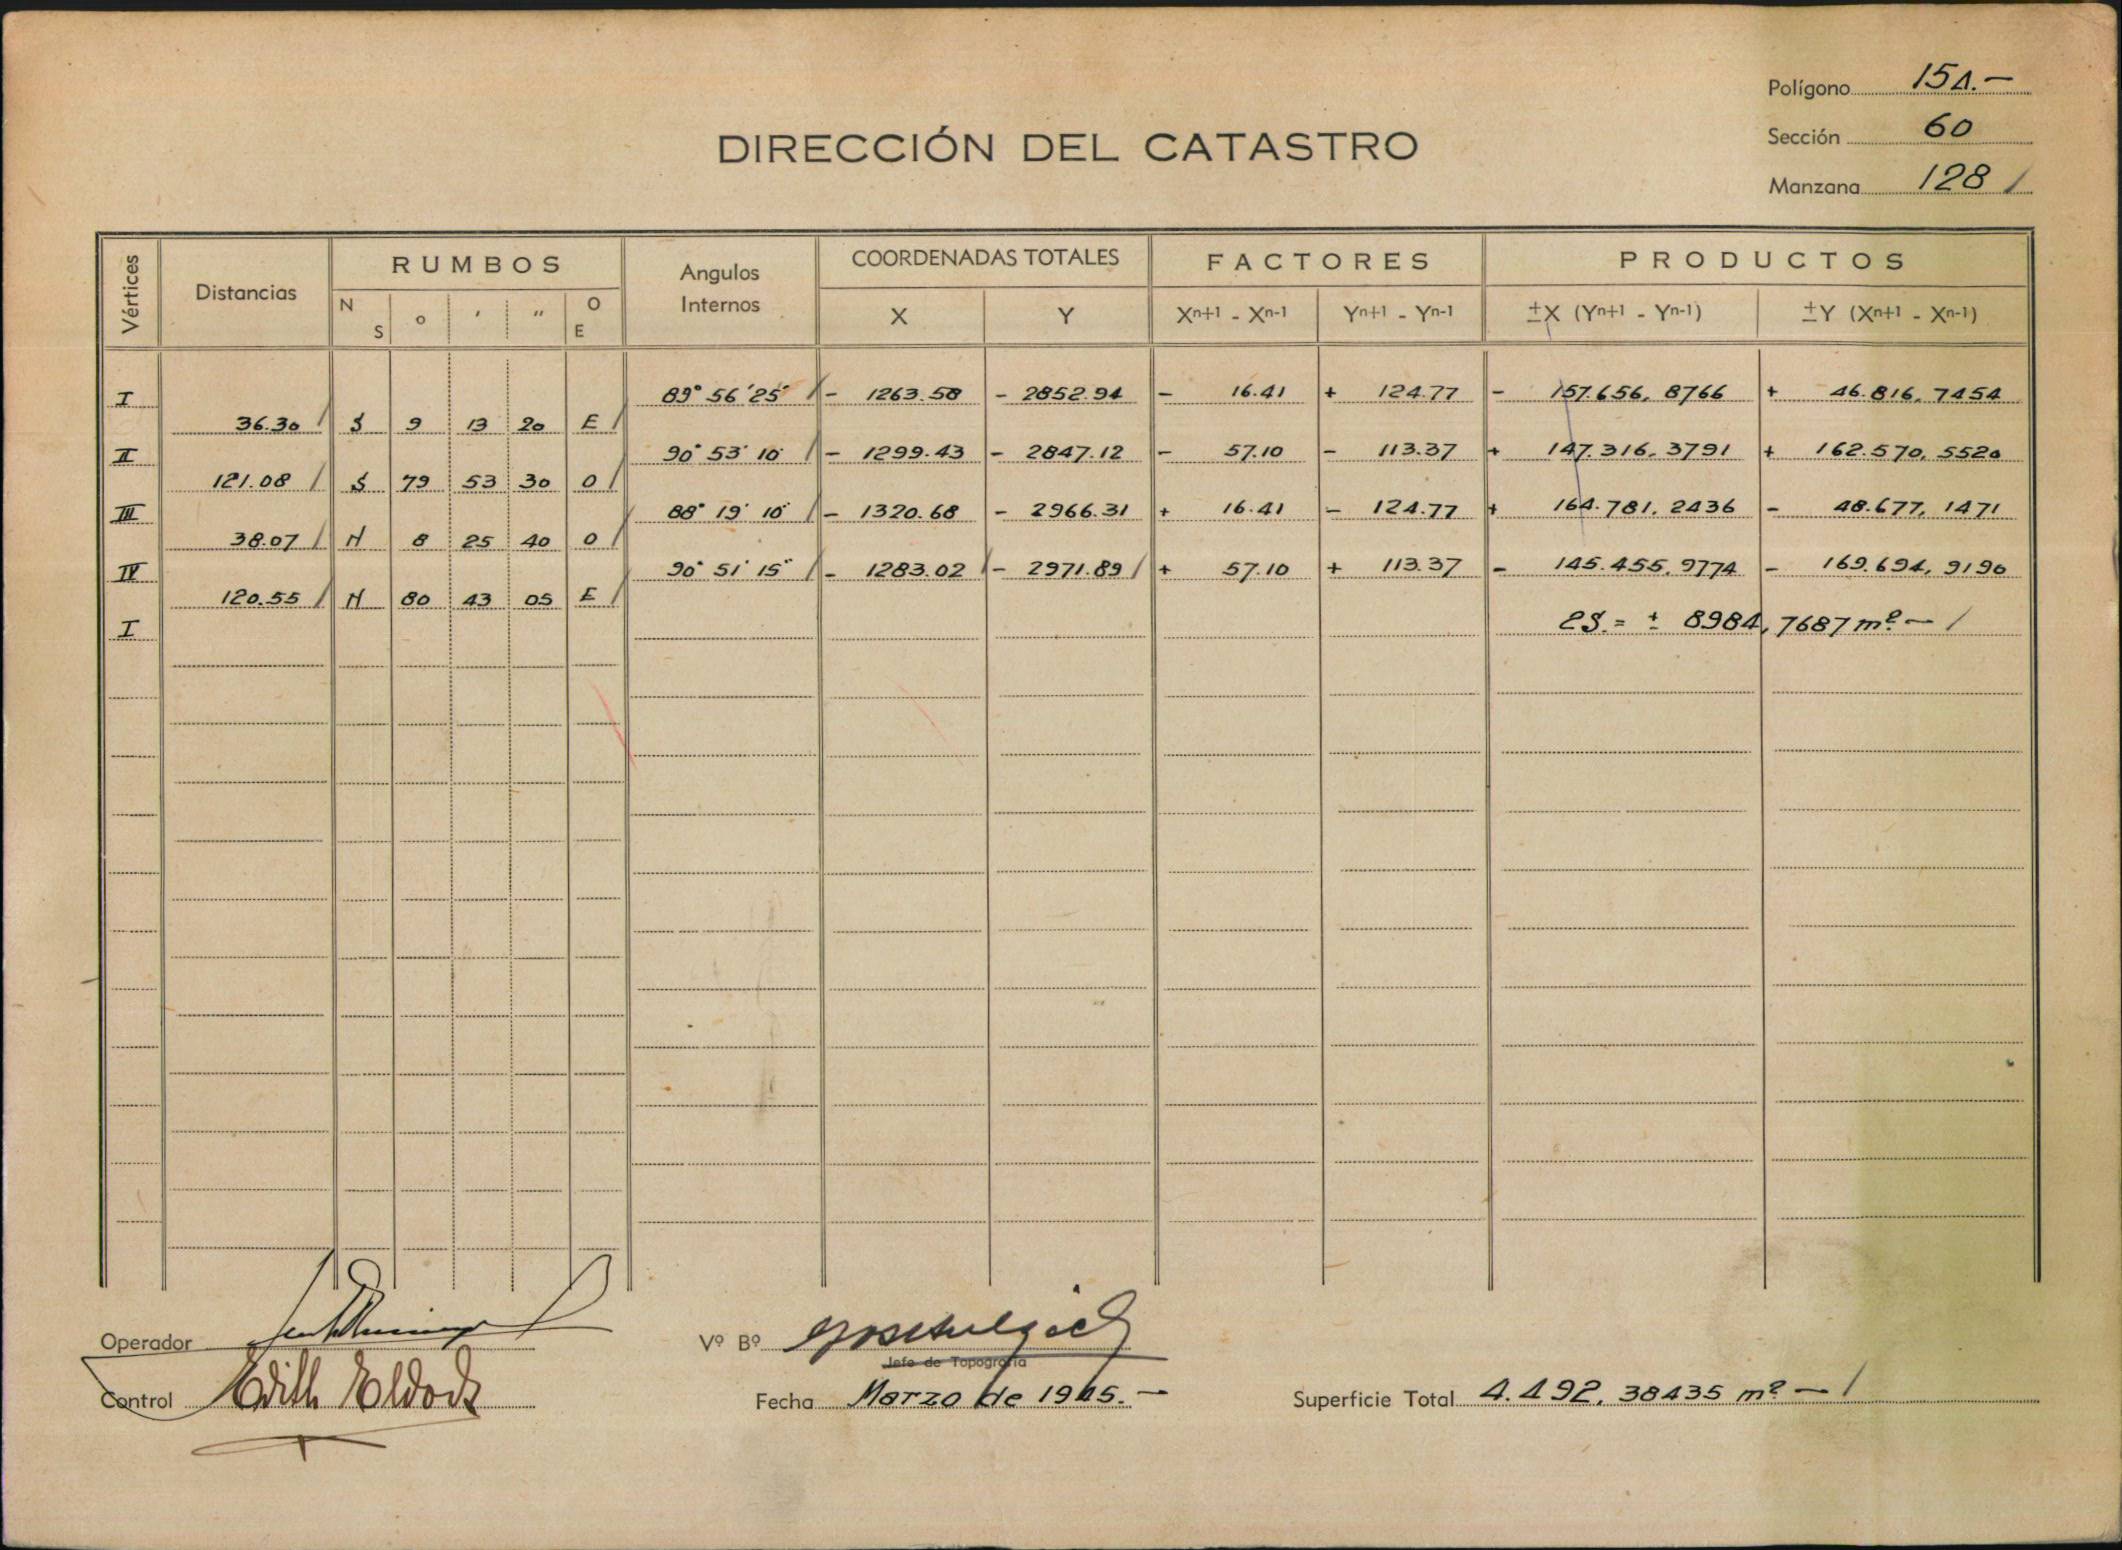 Polígono 154.—
Sección 60
Manzana 128 /
DIRECCIÓN DEL CATASTRO
Vértices Distancias RUMBOS Angulos Internos COORDENADAS TOTALES FACTORES PRODUCTOS
N S o ' " O E X Y Xn+1 - Xn-1 Yn+1 - Yn-1 ±X (Yn+1 - Yn-1) ±Y (Xn+1 - Xn-1)
I 89° 56' 25" / - 1263.58 - 2852.94 - 16.41 + 124.77 - 157.656,8766 + 46.816,7454
36.30 / S 9 13 20 E /
II 90° 53' 10" / - 1299.43 - 2847.12 - 57.10 - 113.37 + 147.316,3791 + 162.570,5520
121.08 / S 79 53 30 O /
III 88° 19' 10" / - 1320.68 - 2966.31 + 16.41 - 124.77 + 164.781,2436 - 48.677,1471
38.07 / N 8 25 40 O /
IV 90° 51' 15" / - 1283.02 / - 2971.89 / + 57.10 + 113.37 - 145.455,9774 - 169.694,9190
120.55 / N 80 43 05 E /
I 2S.= ± 8984,7687 m².— /
Operador
Vº Bº
Jefe de Topografía
Control Edith Eldock
Fecha Marzo de 1945.—
Superficie Total 4.492,38435 m².— /